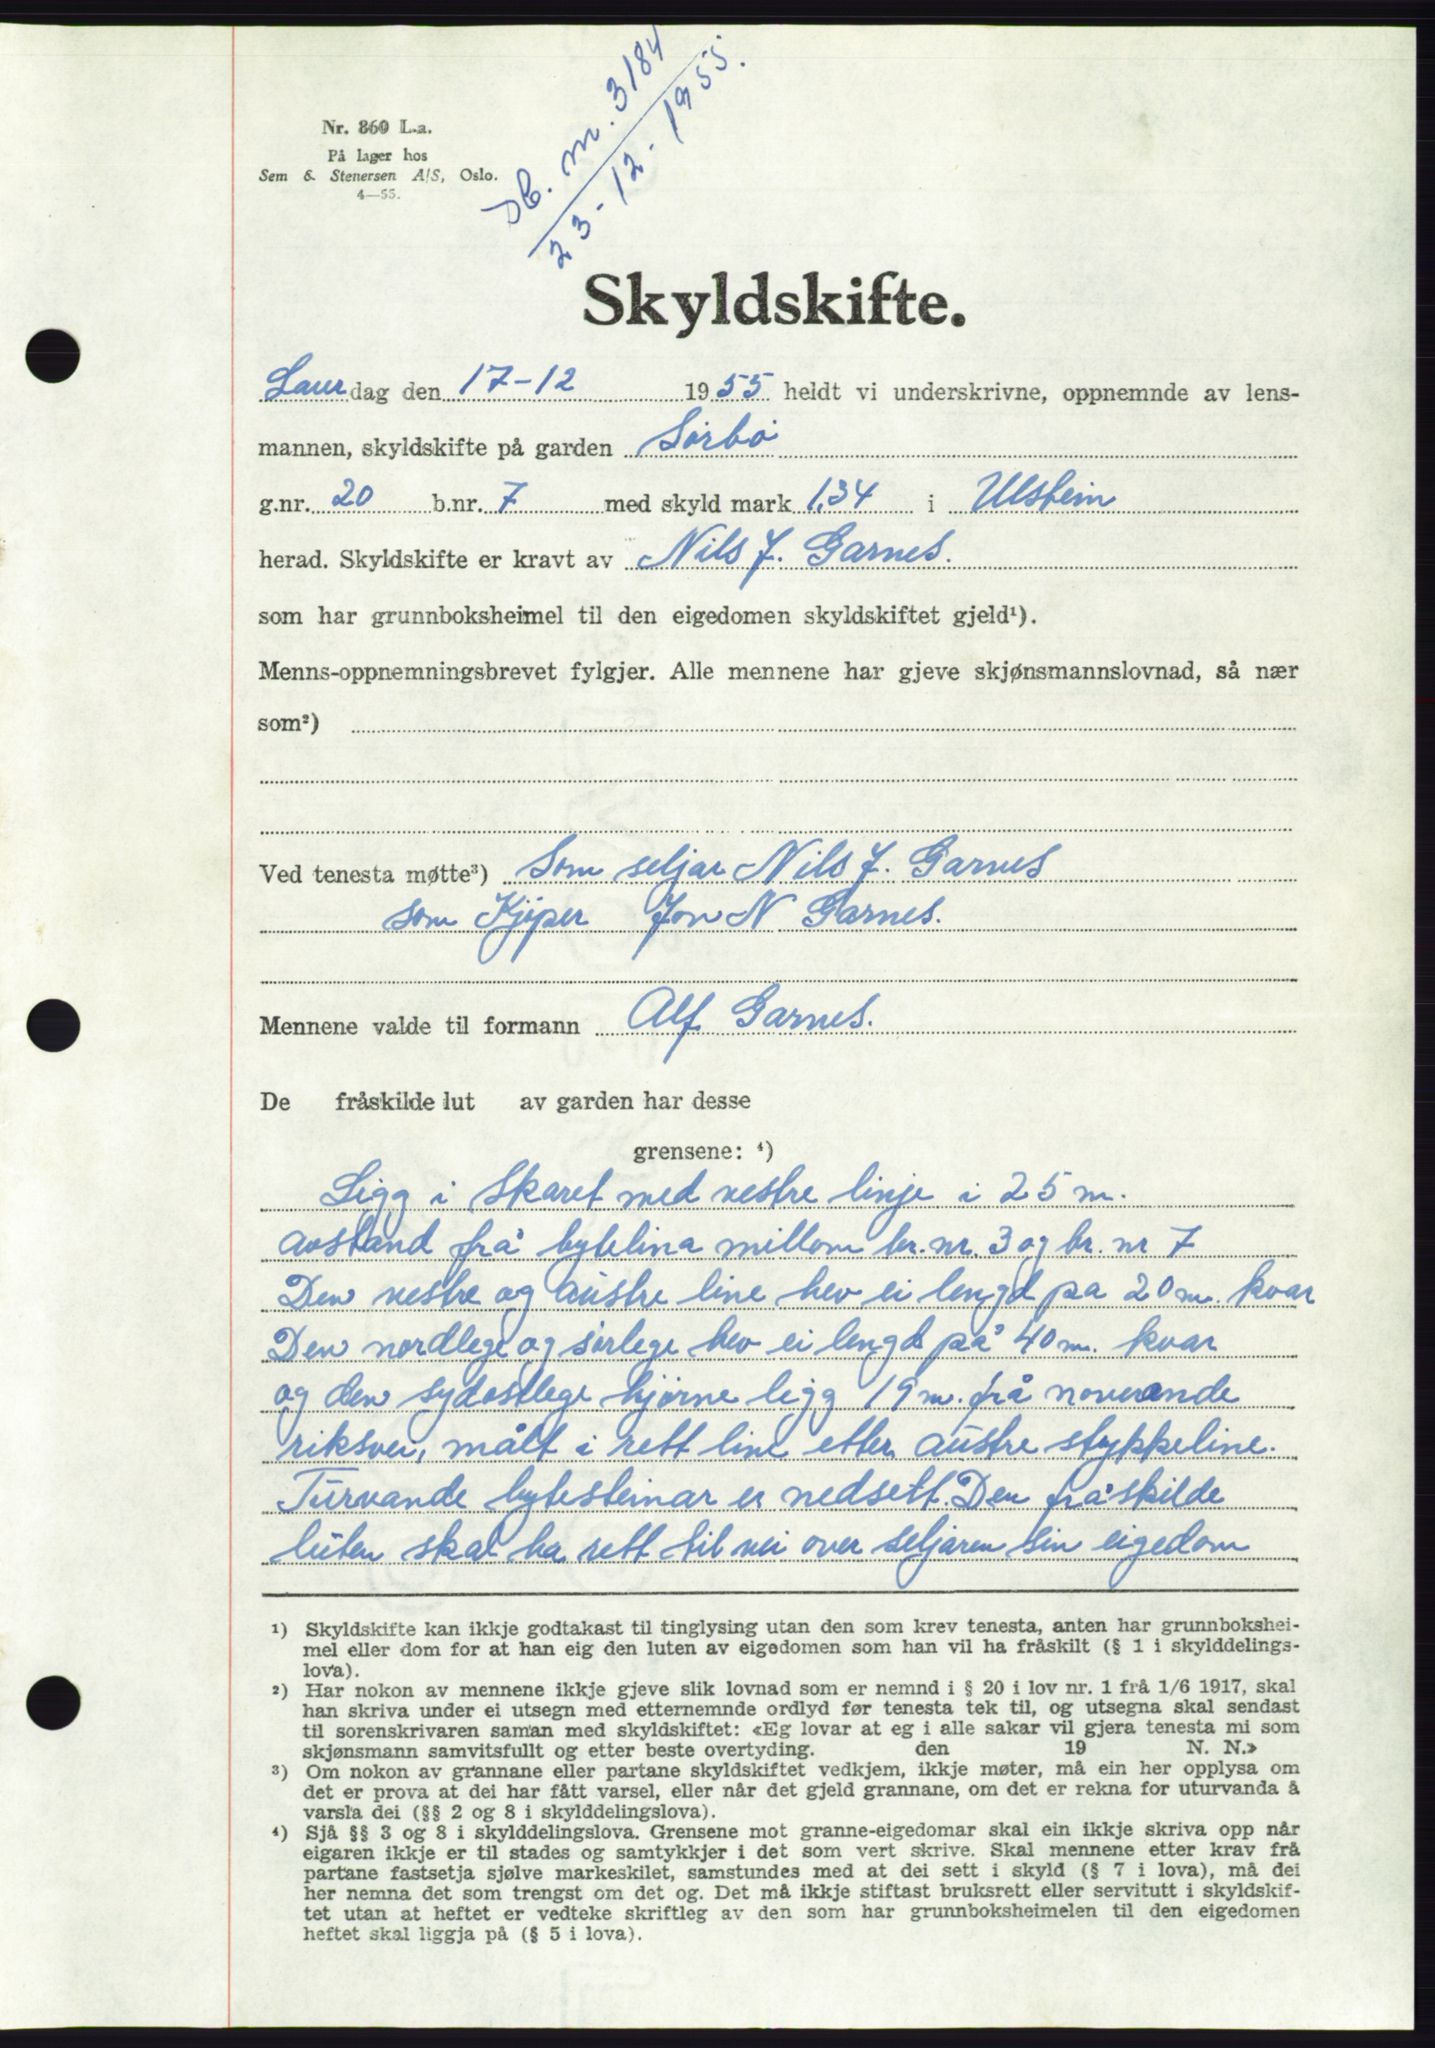 Nr. 860 L.a.
På lager hos
Sem & Stenersen A/S, Oslo.
4—55.
m. 3184
23-12-1955.
Skyldskifte.
Laurdag den 17-12 1955 heldt vi underskrivne, oppnemnde av lens-
mannen, skyldskifte på garden Sørbø
g.nr. 20 b.nr. 7 med skyld mark 1,34 i Ulstein
herad. Skyldskifte er kravt av Nils J. Garnes.
som har grunnboksheimel til den eigedomen skyldskiftet gjeld¹).
Menns-oppnemningsbrevet fylgjer. Alle mennene har gjeve skjønsmannslovnad, så nær
som²)
Ved tenesta møtte³) Som seljar Nils J. Garnes
som Kjøper Jon N Garnes.
Mennene valde til formann Alf Garnes.
De fråskilde lut av garden har desse
grensene: ⁴)
Ligg i Skaret med vestre linje i 25 m.
avstand frå bytelina millom br. nr. 3 og br. nr 7
Den vestre og austre line hev ei lengd pa 20 m. kvar
Den nordlege og sørlege hev ei lengd på 40 m. kvar
og den sydostlege hjørne ligg 19 m. frå noverande
riksvei, målt i rett line etter austre stykkeline.
Turvande bytesteinar er nedsett. Den fråskilde
luten skal ha rett til vei over seljaren sin eigedom
¹) Skyldskifte kan ikkje godtakast til tinglysing utan den som krev tenesta, anten har grunnbokshei-
mel eller dom for at han eig den luten av eigedomen som han vil ha fråskilt (§ 1 i skylddelings-
lova).
²) Har nokon av mennene ikkje gjeve slik lovnad som er nemnd i § 20 i lov nr. 1 frå 1/6 1917, skal
han skriva under ei utsegn med etternemnde ordlyd før tenesta tek til, og utsegna skal sendast
til sorenskrivaren saman med skyldskiftet: «Eg lovar at eg i alle sakar vil gjera tenesta mi som
skjønsmann samvitsfullt og etter beste overtyding. den 19 N. N.»
³) Om nokon av grannane eller partane skyldskiftet vedkjem, ikkje møter, må ein her opplysa om
det er prova at dei har fått varsel, eller når det gjeld grannane, om det er rekna for uturvanda å
varsla dei (§§ 2 og 8 i skylddelingslova).
⁴) Sjå §§ 3 og 8 i skylddelingslova. Grensene mot granne-eigedomar skal ein ikkje skriva opp når
eigaren ikkje er til stades og samtykkjer i det som vert skrive. Skal mennene etter krav frå
partane fastsetja sjølve markeskilet, samstundes med at dei sett i skyld (§ 7 i lova), må dei
her nemna det som trengst om det og. Det må ikkje stiftast bruksrett eller servitutt i skyldskif-
tet utan at heftet er vedteke skriftleg av den som har grunnboksheimelen til den eigedomen
heftet skal liggja på (§ 5 i lova).